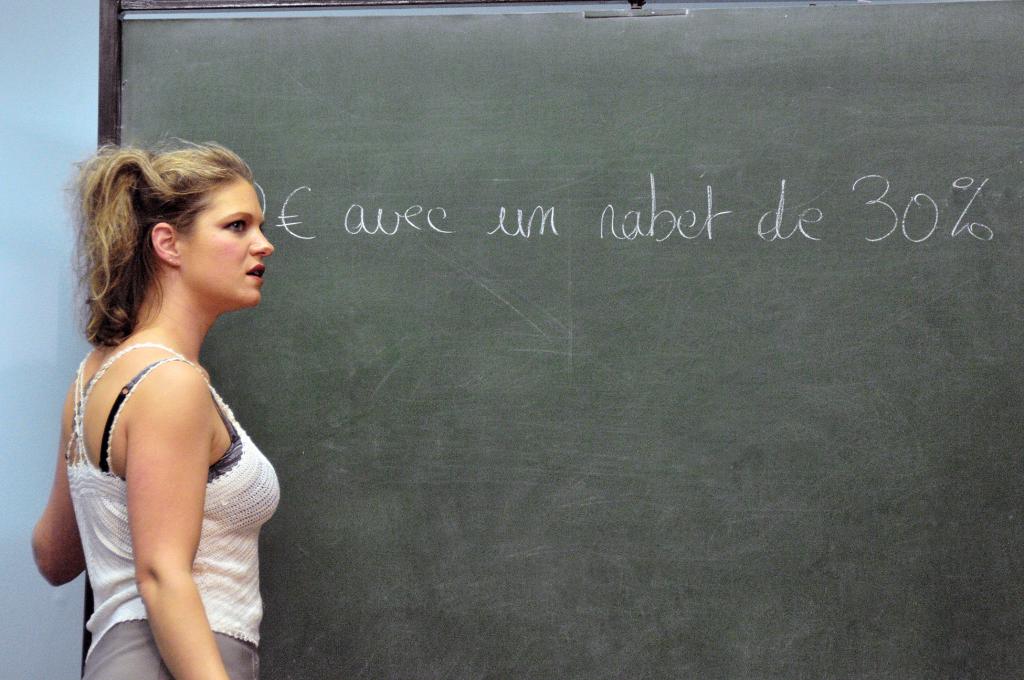 0€ avec un rabet de 30%